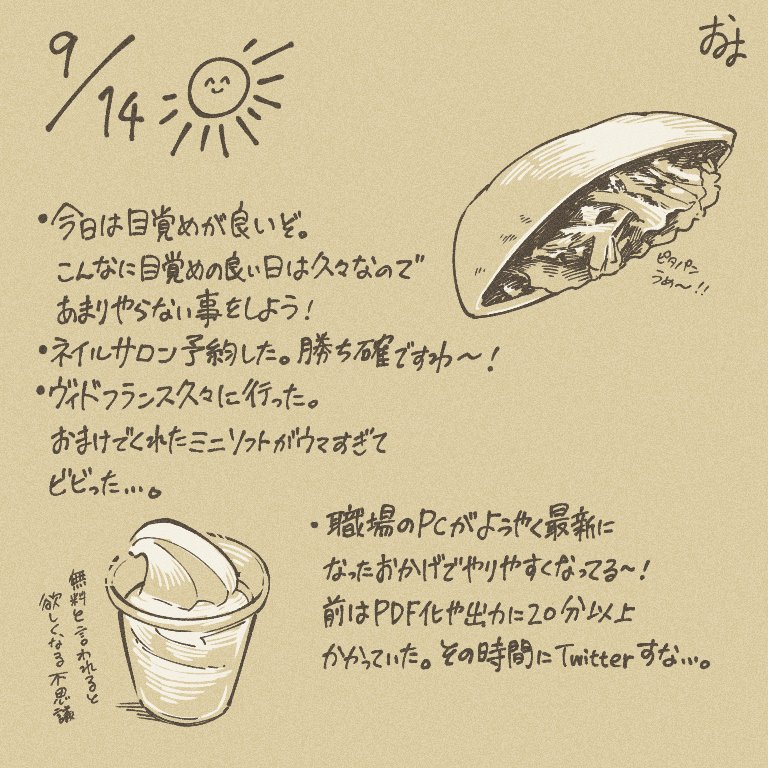 9/14
およ
・今日は目覚めが良いぞ。
こんなに目覚めの良い日は久々なので
あまりやらない事をしよう!
ピタパン
うめ〜!!
・ネイルサロン予約した。勝ち確ですわ〜!
・ヴィドフランス久々に行った。
おまけでくれたミニソフトがウマすぎて
ビビった…。
・職場のPCがようやく最新に
なったおかげでやりやすくなってる〜!
前はPDF化や出力に20分以上
かかっていた。その時間にTwitterすな…。
無料と言われると
欲しくなる不思議